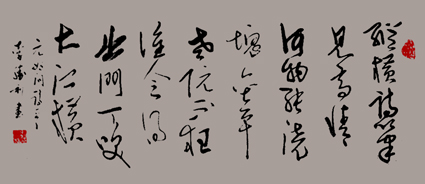 縱橫詩筆
見高情
何物能澆
塊壘平
老阮不狂
誰會得
出門一笑
大江橫
元好問詩